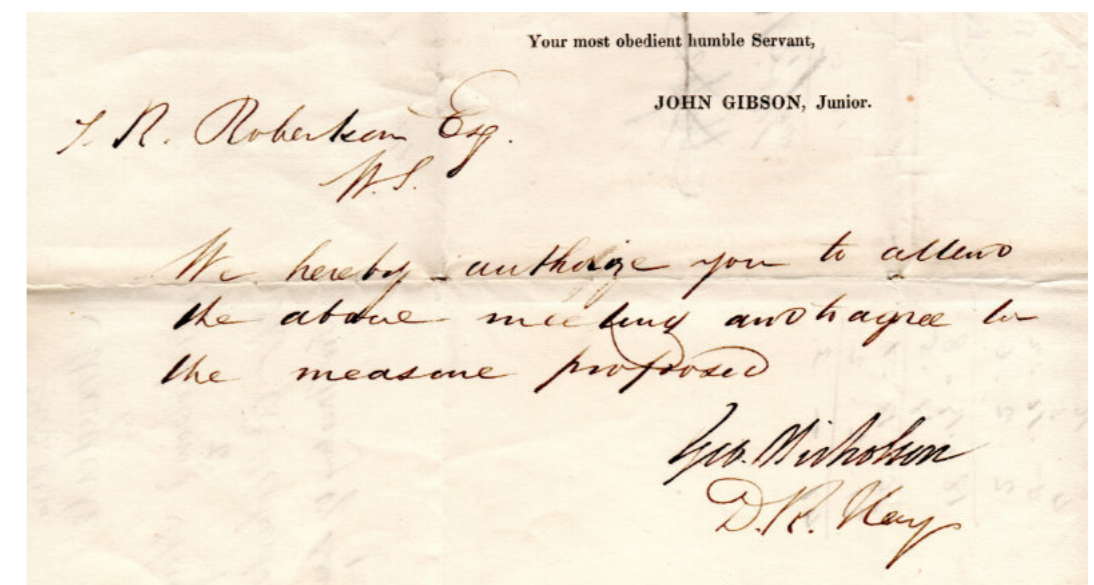 Your most obedient humble Servant,
JOHN GIBSON, Junior.
T. R. Robertson Esq.
W.S.
We hereby authorize you to attend
the above meeting and to agree to
the measure proposed
Geo. Nicholson
D. R. Hay